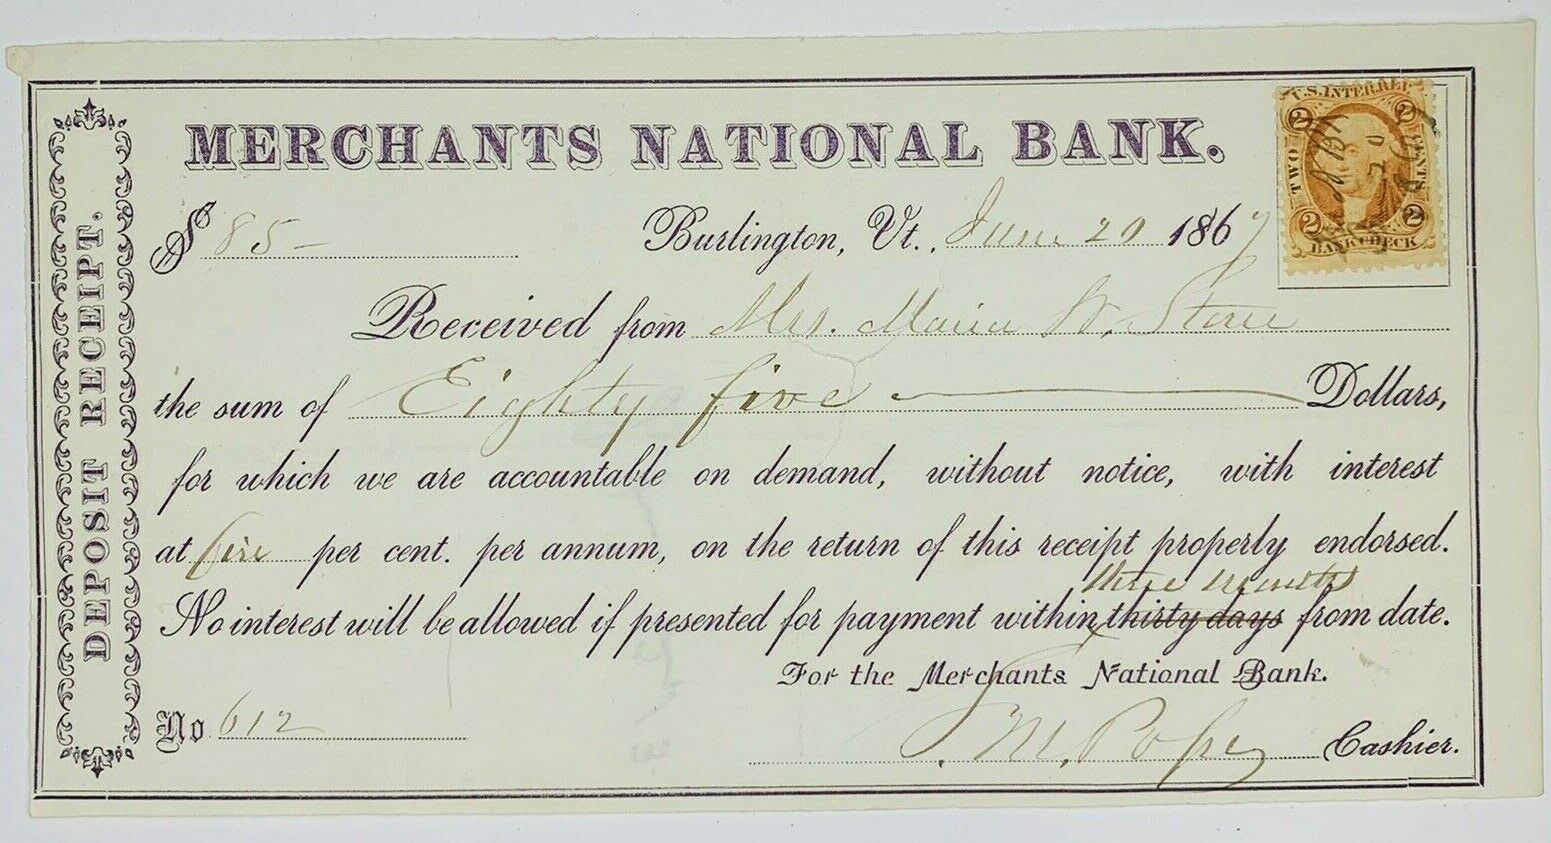 DEPOSIT RECEIPT.
MERCHANTS NATIONAL BANK.
$ 85 –
Burlington, Vt., June 20 1867
Received from Mrs. Maria W. Stone
the sum of Eighty five Dollars,
for which we are accountable on demand, without notice, with interest
at five per cent. per annum, on the return of this receipt properly endorsed.
three months
No interest will be allowed if presented for payment within thirty days from date.
For the Merchants National Bank.
No 612
Cashier.
U.S. INTER. REV.
2 2
TWO CENTS
2 2
BANK CHECK